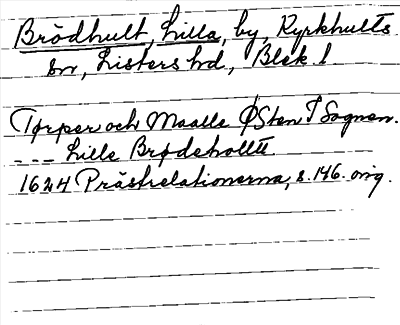 Brödhult, Lilla, by, Kyrkhults
sn, Listers hd, Blek. l
Torper och Maalle ØSten I Sognen.
--- Lille Brødehollt
1624 Prästrelationerna, s. 146. orig.